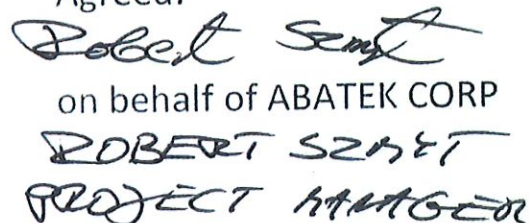 Agreed.
Robert Szmyt
on behalf of ABATEK CORP
ROBERT SZMYT
PROJECT MANAGER